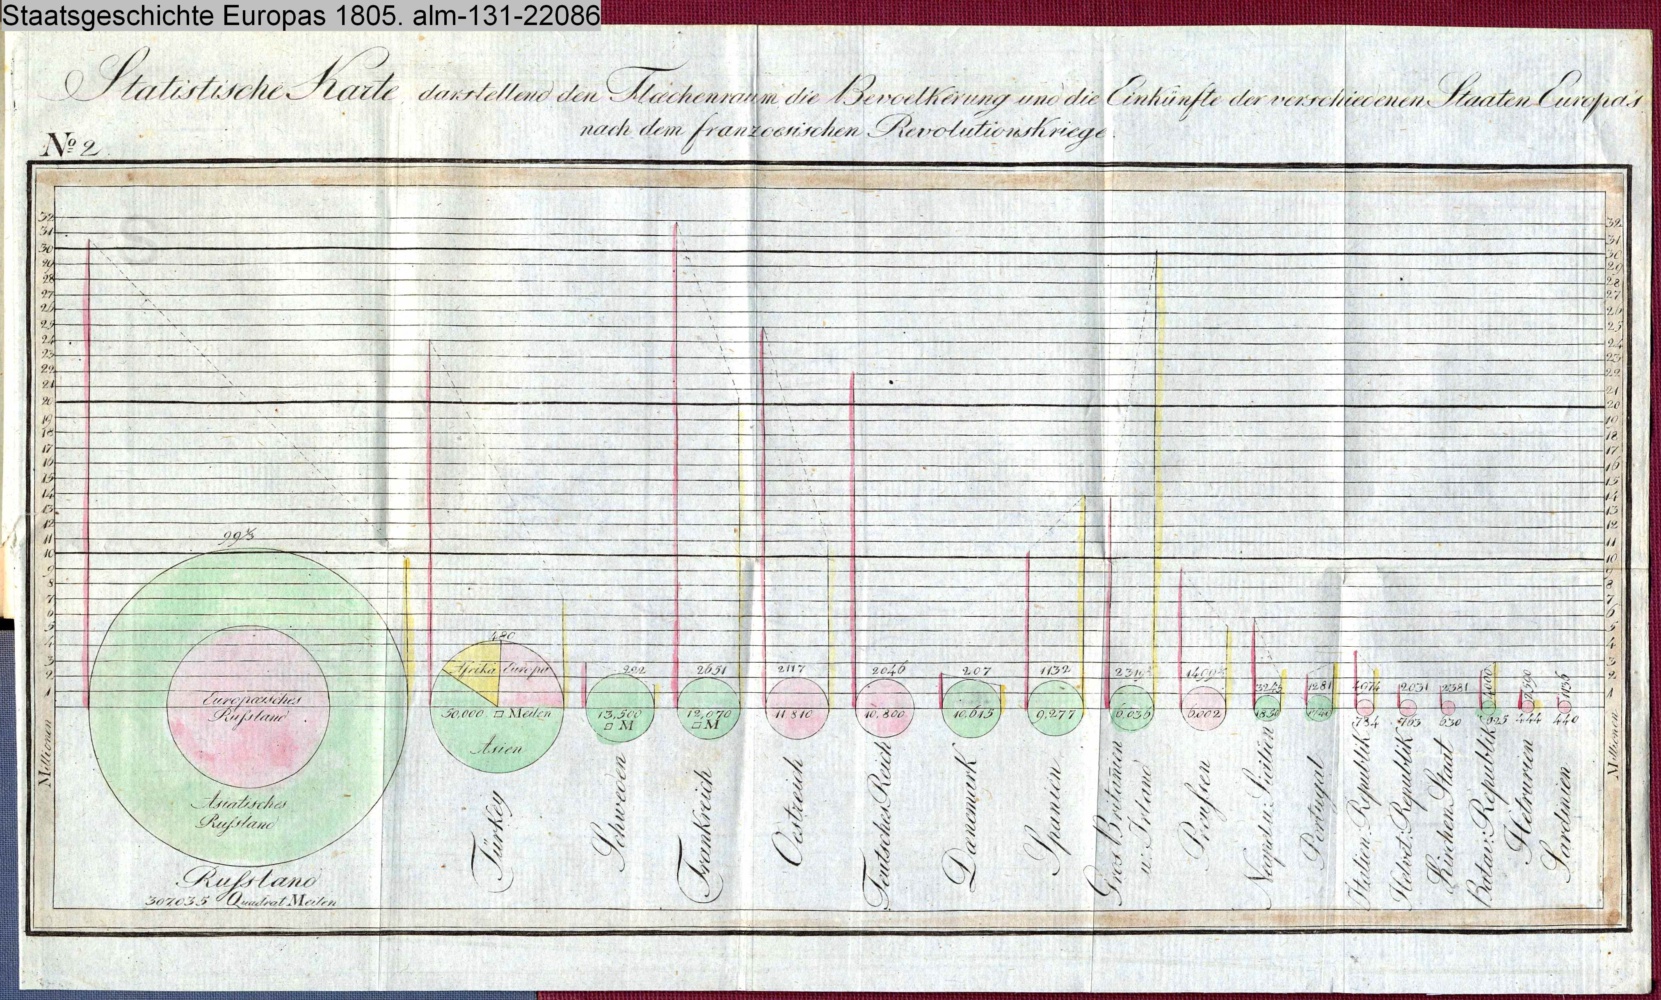 Staatsgeschichte Europas 1805. alm-131-22086
Statistische Karte darstellend den Flaechenraum die Bevoelkerung und die Einkünfte der verschiedenen Staaten Europa's
nach dem franzoesischen Revolutionskriege.
Nº 2
32
31
30
29
28
27
26
25
24
23
22
21
20
19
18
17
16
15
14
13
12
11
10
9
8
7
6
5
4
3
2
1
Millionen
Europæisches
Rußland
Asiatisches
Rußland
Rußland
307035 Quadrat Meilen
480
Afrika Europa
50,000 □ Meilen
Asien
Türkey
222
13,500
□ M
Schweden
2651
12,070
□ M
Frankreich
2117
11 810
Oestreich
2046
10,800
Teutsches Reich
207
10,615
Dænemark
1132
9,277
Spanien
6,036
Gros Britanien
u: Irland
6,002
Preußen
Neapel u: Sicilien
1281
Portugal
784
Italien: Republik
2031
703
Helvet: Republik
2381
630
Kirchen Staat
625
Batav: Republik
444
Hetrurien
440
Sardinien
32
31
30
29
28
27
26
25
24
23
22
21
20
19
18
17
16
15
14
13
12
11
10
9
8
7
6
5
4
3
2
1
Millionen